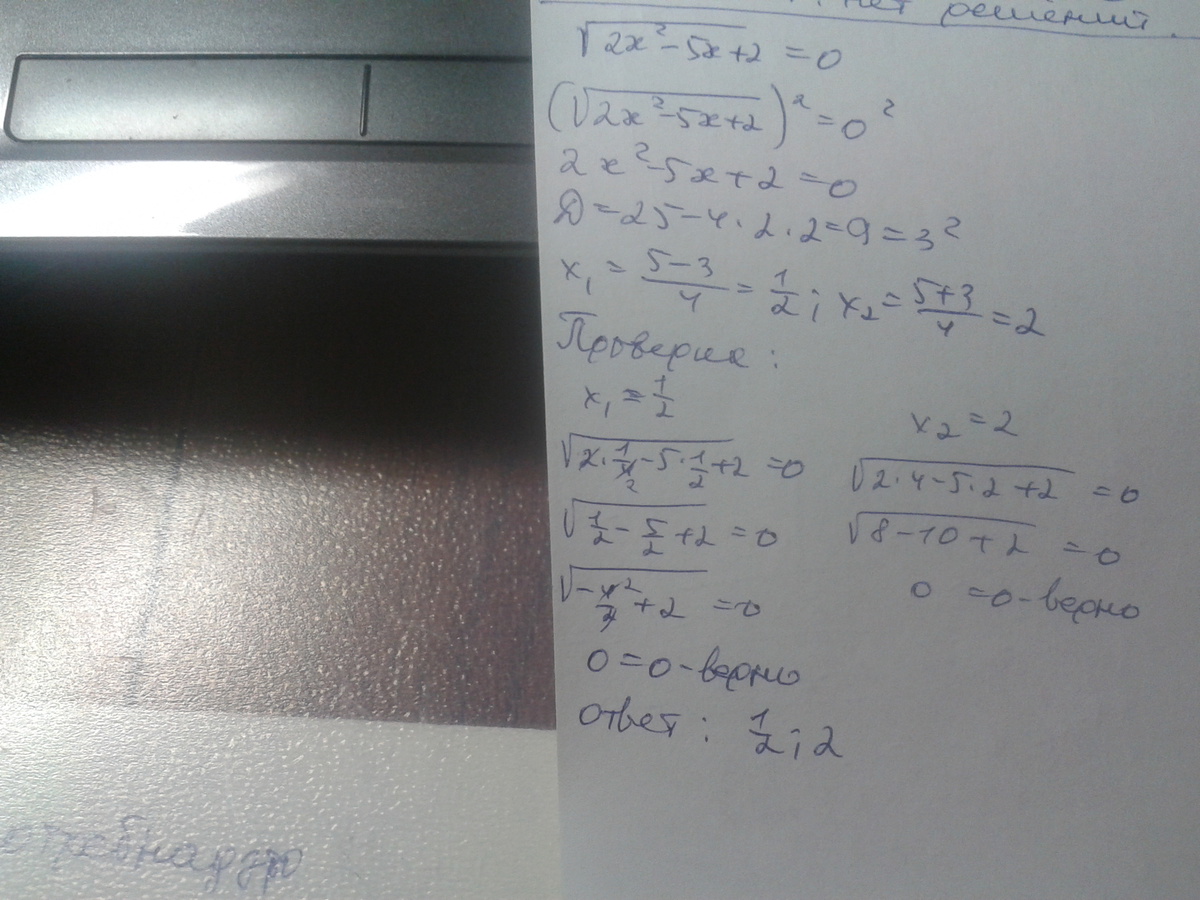 нет решений.
√(2x²-5x+2) = 0
(√(2x²-5x+2))² = 0²
2x²-5x+2=0
D=25-4·2·2=9=3²
x₁ = (5-3)/4 = 1/2; x₂ = (5+3)/4 = 2
Проверка:
x₁ = 1/2
√(2·1/4-5·1/2+2) = 0
√(1/2-5/2+2) = 0
√(-4/2+2) = 0
0=0-верно
x₂ = 2
√(2·4-5·2+2) = 0
√(8-10+2) = 0
0 =0-верно
ответ: 1/2; 2